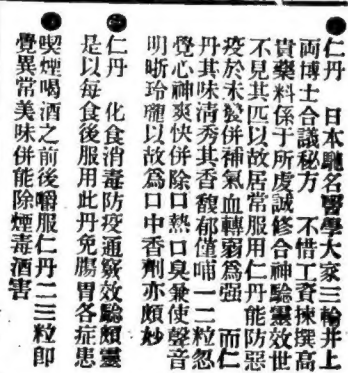 ●仁丹　日本馳名醫學大家三輪井上
両博士合議秘方　不惜工資揀撰高
貴藥料係于所虔誠修合神驗靈效世
不見其匹以故居常服用仁丹能防惡
疫於未發併補氣血轉弱爲强　而仁
丹其味清秀其香馥郁僅哺一二粒忽
覺心神爽快併除口熱口臭兼使聲音
明晣玲瓏以故爲口中香劑亦頗妙
●仁丹　化食消毒防疫通竅效驗頗靈
是以每食後服用此丹免腸胃各症患
●喫煙喝酒之前後嚼服仁丹二三粒即
覺異常美味併能除煙毒酒害